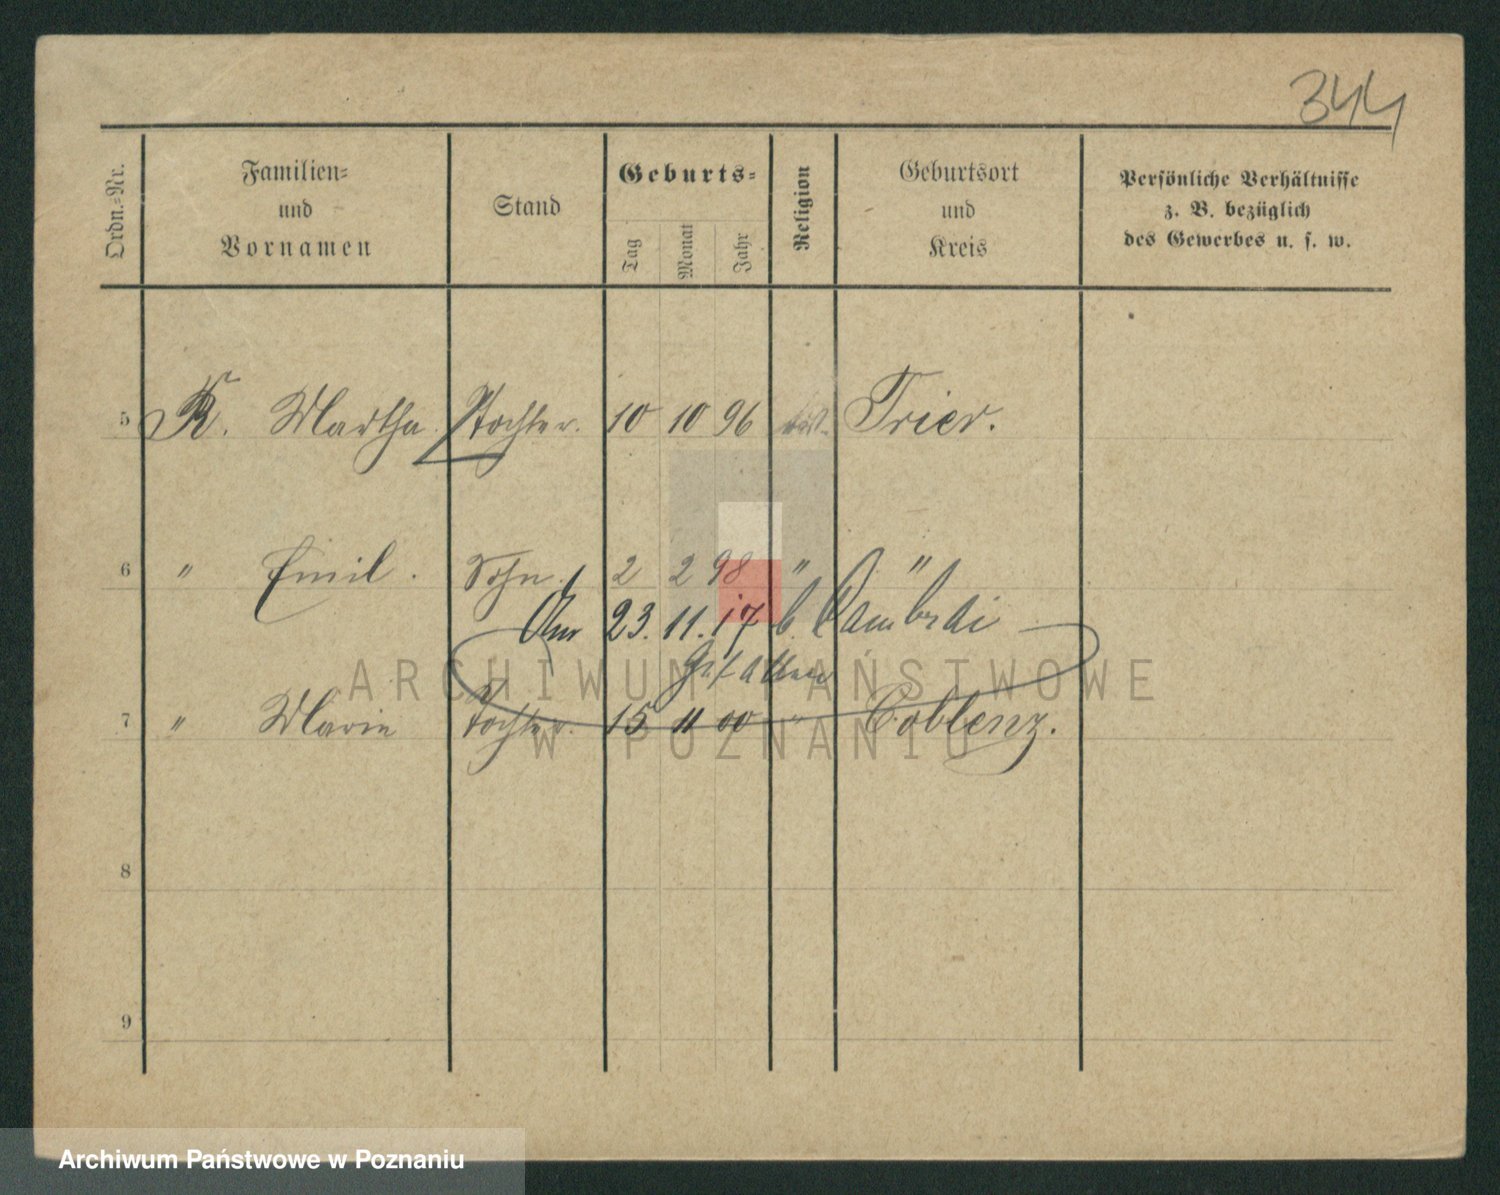 344
Ordn.=Nr.
Familien=
und
Vornamen
Stand
Geburts=
Tag
Monat
Jahr
Religion
Geburtsort
und
Kreis
Persönliche Verhältnisse
z. B. bezüglich
des Gewerbes u. s. w.
5 K. Martha. Tochter. 10 10 96 Trier.
6 " Emil. Sohn. 2 2 98 " "
Am 23. 11. 17 b. Cambrai
Gefallen
ARCHIWUM PAŃSTWOWE
7 " Marie Tochter. 15 11 00 " Coblenz.
W POZNANIU
8
9
Archiwum Państwowe w Poznaniu